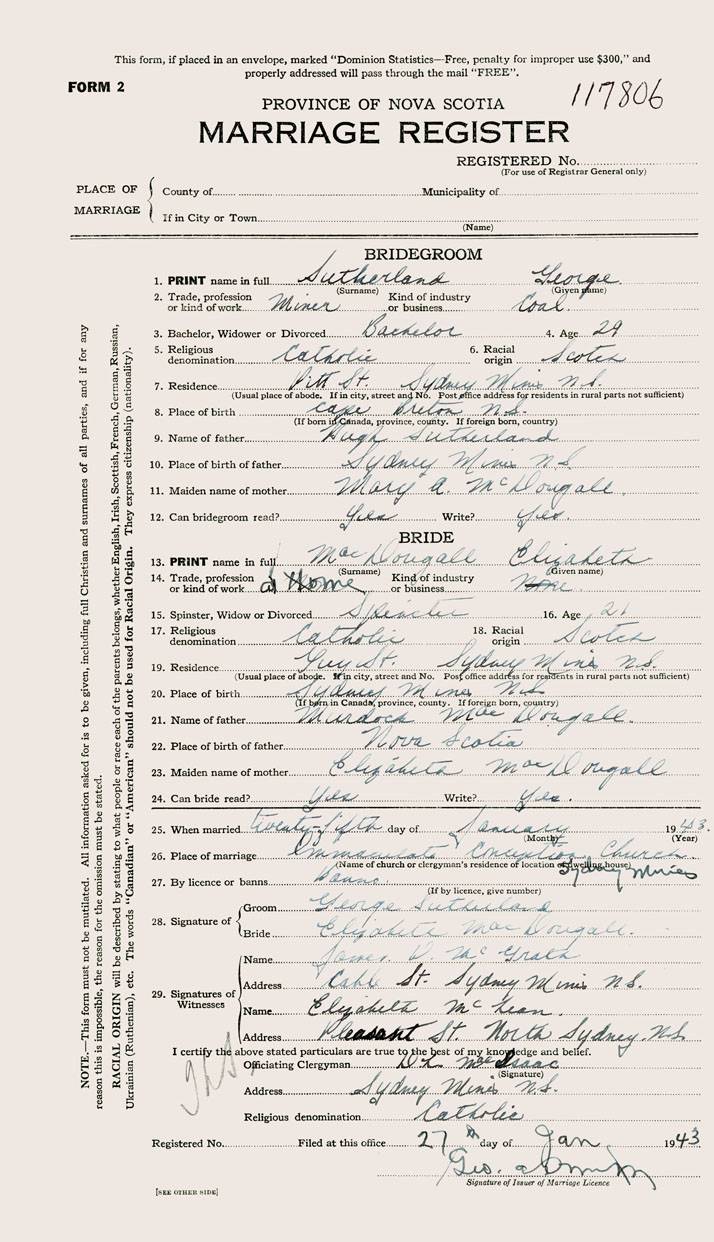 This form, if placed in an envelope, marked "Dominion Statistics—Free, penalty for improper use $300," and
properly addressed will pass through the mail "FREE".
FORM 2
117806
PROVINCE OF NOVA SCOTIA
MARRIAGE REGISTER
REGISTERED No.
(For use of Registrar General only)
PLACE OF MARRIAGE
County of Municipality of
If in City or Town
(Name)
BRIDEGROOM
1. PRINT name in full Sutherland George
(Surname) (Given name)
2. Trade, profession or kind of work Miner Kind of industry or business Coal
3. Bachelor, Widower or Divorced Bachelor 4. Age 29
5. Religious denomination Catholic 6. Racial origin Scotch
7. Residence Pitt St. Sydney Mines N.S.
(Usual place of abode. If in city, street and No. Post office address for residents in rural parts not sufficient)
8. Place of birth Cape Breton N.S.
(If born in Canada, province, county. If foreign born, country)
9. Name of father Hugh Sutherland
10. Place of birth of father Sydney Mines N.S.
11. Maiden name of mother Mary A. McDougall.
12. Can bridegroom read? Yes Write? Yes.
BRIDE
13. PRINT name in full MacDougall Elizabeth
(Surname) (Given name)
14. Trade, profession or kind of work at Home Kind of industry or business None
15. Spinster, Widow or Divorced Spinster 16. Age 21
17. Religious denomination Catholic 18. Racial origin Scotch
19. Residence Guy St. Sydney Mines N.S.
(Usual place of abode. If in city, street and No. Post office address for residents in rural parts not sufficient)
20. Place of birth Sydney Mines N.S.
(If born in Canada, province, county. If foreign born, country)
21. Name of father Murdock MacDougall.
22. Place of birth of father Nova Scotia
23. Maiden name of mother Elizabeth MacDougall
24. Can bride read? Yes Write? Yes.
25. When married twenty-fifth day of January 1943.
(Month) (Year)
26. Place of marriage Immaculate Conception Church.
(Name of church or clergyman's residence of location of dwelling house)
Sydney Mines
27. By licence or banns Banns.
(If by licence, give number)
28. Signature of
Groom George Sutherland
Bride Elizabeth MacDougall.
29. Signatures of Witnesses
Name James D. McGrath
Address Cable St. Sydney Mines N.S.
Name Elizabeth McKean.
Address Pleasant St. North Sydney. N.S
I certify the above stated particulars are true to the best of my knowledge and belief.
Officiating Clergyman D.L. MacIsaac
(Signature)
Address Sydney Mines N.S.
Religious denomination Catholic
Registered No. Filed at this office 27th day of Jan 1943
Geo.
Signature of Issuer of Marriage Licence
[SEE OTHER SIDE]
NOTE.—This form must not be mutilated. All information asked for is to be given, including full Christian and surnames of all parties, and if for any
reason this is impossible, the reason for the omission must be stated.
RACIAL ORIGIN will be described by stating to what people or race each of the parents belongs, whether English, Irish, Scottish, French, German, Russian,
Ukrainian (Ruthenian), etc. The words "Canadian" or "American" should not be used for Racial Origin. They express citizenship (nationality).